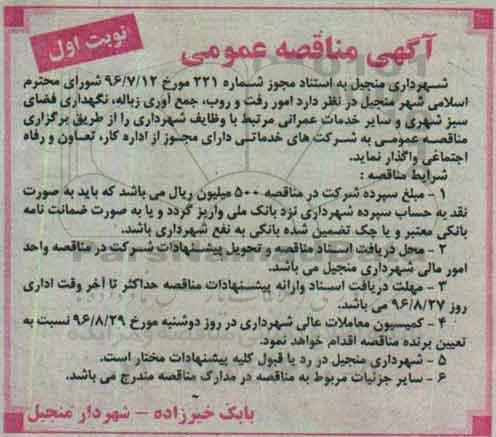 نوبت اول
آگهی مناقصه عمومی
شـهرداری منجیل به استناد مجوز شـماره ۲۲۱ مورخ ۹۶/۷/۱۲ شورای محترم
اسلامی شهر منجیل در نظر دارد امور رفت و روب، جمع آوری زباله، نگهداری فضای
سبز شهری و سایر خدمات عمرانی مرتبط با وظایف شهرداری را از طریق برگزاری
مناقصـه عمومـی به شـرکت های خدماتـی دارای مجـوز از اداره کار، تعـاون و رفاه
اجتماعی واگذار نماید.
شرایط مناقصه :
۱ - مبلغ سپرده شرکت در مناقصه ۵۰۰ میلیون ریال می باشد که باید به صورت
نقد به حساب سپرده شهرداری نزد بانک ملی واریز گردد و یا به صورت ضمانت نامه
بانکی معتبر و یا چک تضمین شده بانکی به نفع شهرداری باشد.
۲ - محل دریافت اسـناد مناقصه و تحویل پیشـنهادات شـرکت در مناقصه واحد
امور مالی شهرداری منجیل می باشد.
۳ - مهلت دریافت اسـناد وارائه پیشـنهادات مناقصه حداکثر تا آخر وقت اداری
روز ۹۶/۸/۲۷ می باشد.
۴ - کمیسیون معاملات عالی شهرداری در روز دوشنبه مورخ ۹۶/۸/۲۹ نسبت به
تعیین برنده مناقصه اقدام خواهد نمود.
۵ - شهرداری منجیل در رد یا قبول کلیه پیشنهادات مختار است.
۶ - سایر جزئیات مربوط به مناقصه در مدارک مناقصه مندرج می باشد.
بابک خیرزاده - شهردار منجیل